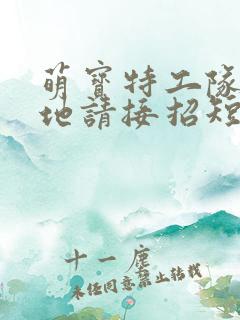 萌寶特工隊
地請接招短
十一塵
未經同意禁止轉載